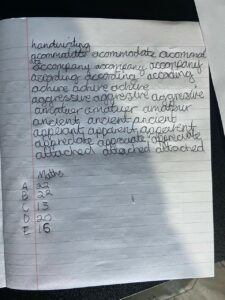 handwriting
acommodate acommodate acommod
accompany accompany accompany
according according according
achive achive achive
aggressive aggressive aggressive
amatuer amatuer amatuer
ancient ancient ancient
apparent apparent
appreciate appreciate appreciate
attached attached attached
Maths
A 22
B 22
C 13
D 20
E 16